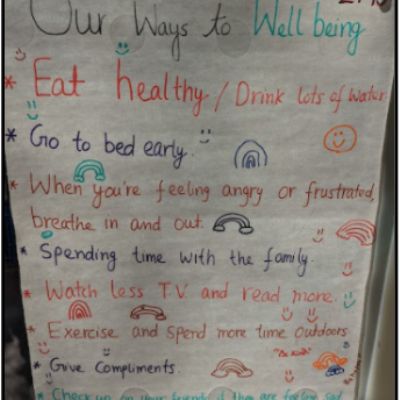 Our Ways to Well being
* Eat healthy / Drink lots of water
* Go to bed early.
* When you're feeling angry or frustrated,
breathe in and out.
* Spending time with the family.
* Watch less T.V. and read more.
* Exercise and spend more time outdoors
* Give Compliments.
* Check up on your friends if they are feeling sad